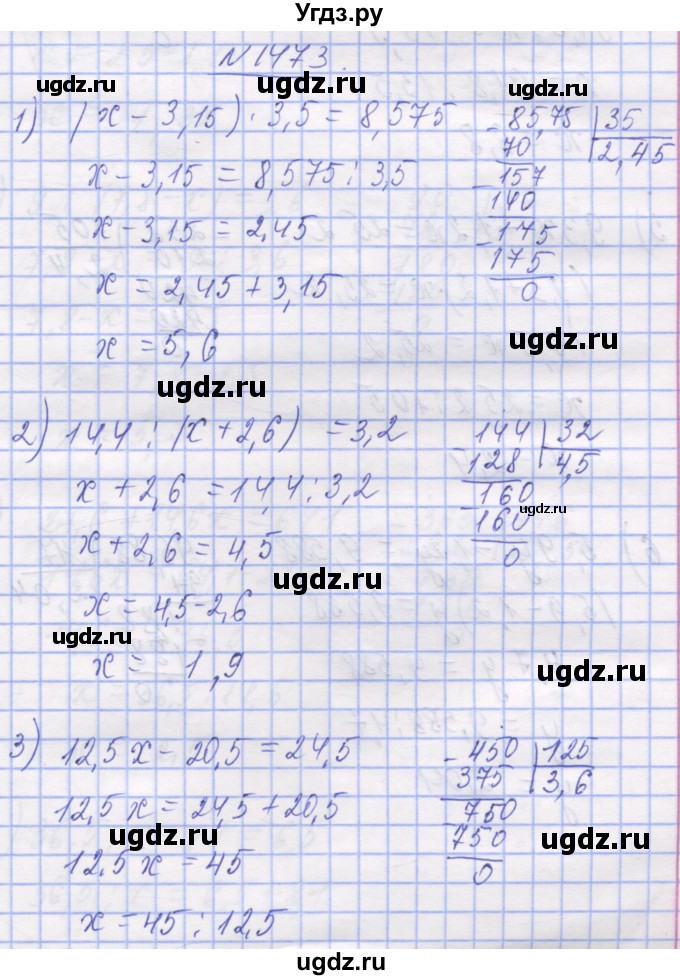 Угдз.ру
N1473.
ugdz.ru
ugdz.ru
1) (x - 3,15) · 3,5 = 8,575
x - 3,15 = 8,575 : 3,5
x - 3,15 = 2,45
x = 2,45 + 3,15
x = 5,6
- 85,75 | 35
70 | 2,45
- 157
140
- 175
175
0
ugdz.ru
ugdz.ru
ugdz.ru
ugdz.ru
2) 14,4 : (x + 2,6) = 3,2
x + 2,6 = 14,4 : 3,2
x + 2,6 = 4,5
x = 4,5 - 2,6
x = 1,9
- 144 | 32
128 | 4,5
- 160
160
0
ugdz.ru
ugdz.ru
ugdz.ru
ugdz.ru
ugdz.ru
3) 12,5x - 20,5 = 24,5
12,5x = 24,5 + 20,5
12,5x = 45
x = 45 : 12,5
- 450 | 125
375 | 3,6
- 750
750
0
ugdz.ru
ugdz.ru
ugdz.ru